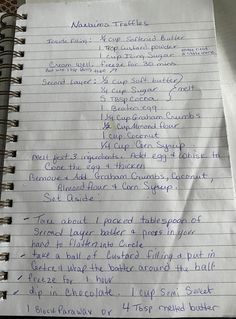 Nanaimo Truffles
Inside Filling: 1/4 cup Softened Butter
1 Tbsp Custard powder
1 Cup Icing Sugar
Cream Well. Freeze for 30 mins
Second Layer: 1/2 Cup Soft butter
1/4 Cup Sugar } melt
5 TBSP Cocoa
1 Beaten egg
1 1/4 Cup Graham Crumbs
1/2 Cup Almond flour
1 cup Coconut
1/4 Cup Corn Syrup
Melt first 3 ingredients. Add egg & whisk to
Cook the egg & thicken
Remove & Add Graham Crumbs, Coconut,
Almond flour & Corn Syrup.
Set Aside.
• Take about 1 packed tablespoon of
Second Layer batter & press in your
hand to flatten into Circle
• take a ball of Custard filling & put in
Centre & Wrap the batter around the ball
• freeze for 1 hour
• dip in Chocolate. 1 cup Semi Sweet
1 Block ParaWax or 4 Tbsp melted butter